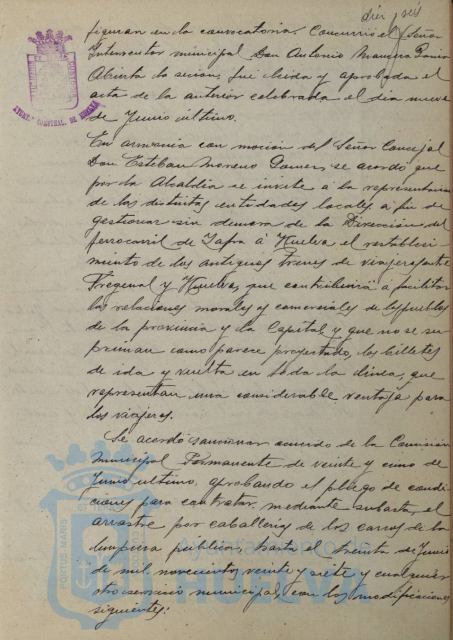 diez y seis
figuran en la convocatoria. Concurrió el Señor
Interventor municipal Don Antonio
Abierta la sesión, fué leida y aprobada el
acta de la anterior celebrada el dia nueve
de Junio ultimo.
En armonia con mocion del Señor Concejal
Don Esteban Moreno Gomez, se acordó que
por la Alcaldia se invite á la representacion
de las distintas entidades locales a fin de
gestionar sin demora de la Direccion del
ferrocarril de Zafra á Huelva el restableci-
miento de los antiguos trenes de viajeros entre
Fregenal y Huelva, que contribuirá a facilitar
las relaciones morales y comerciales de los pueblos
de la provincia y la Capital, y que no se su-
priman como parece proyectado, los billetes
de ida y vuelta en toda la linea, que
representan una considerable ventaja para
los viajeros.
Se acordó sancionar acuerdo de la Comision
Municipal Permanente de veinte y cinco de
Junio ultimo, aprobando el pliego de condi-
ciones para contratar, mediante subasta, el
arrastre por caballerias de los carros de la
limpieza pública, hasta el treinta de Junio
de mil novecientos veinte y siete y cualquier
otro servicio municipal, con las modificaciones
siguientes:
Ayuntamiento de
HUELVA
PORTUS MARIS